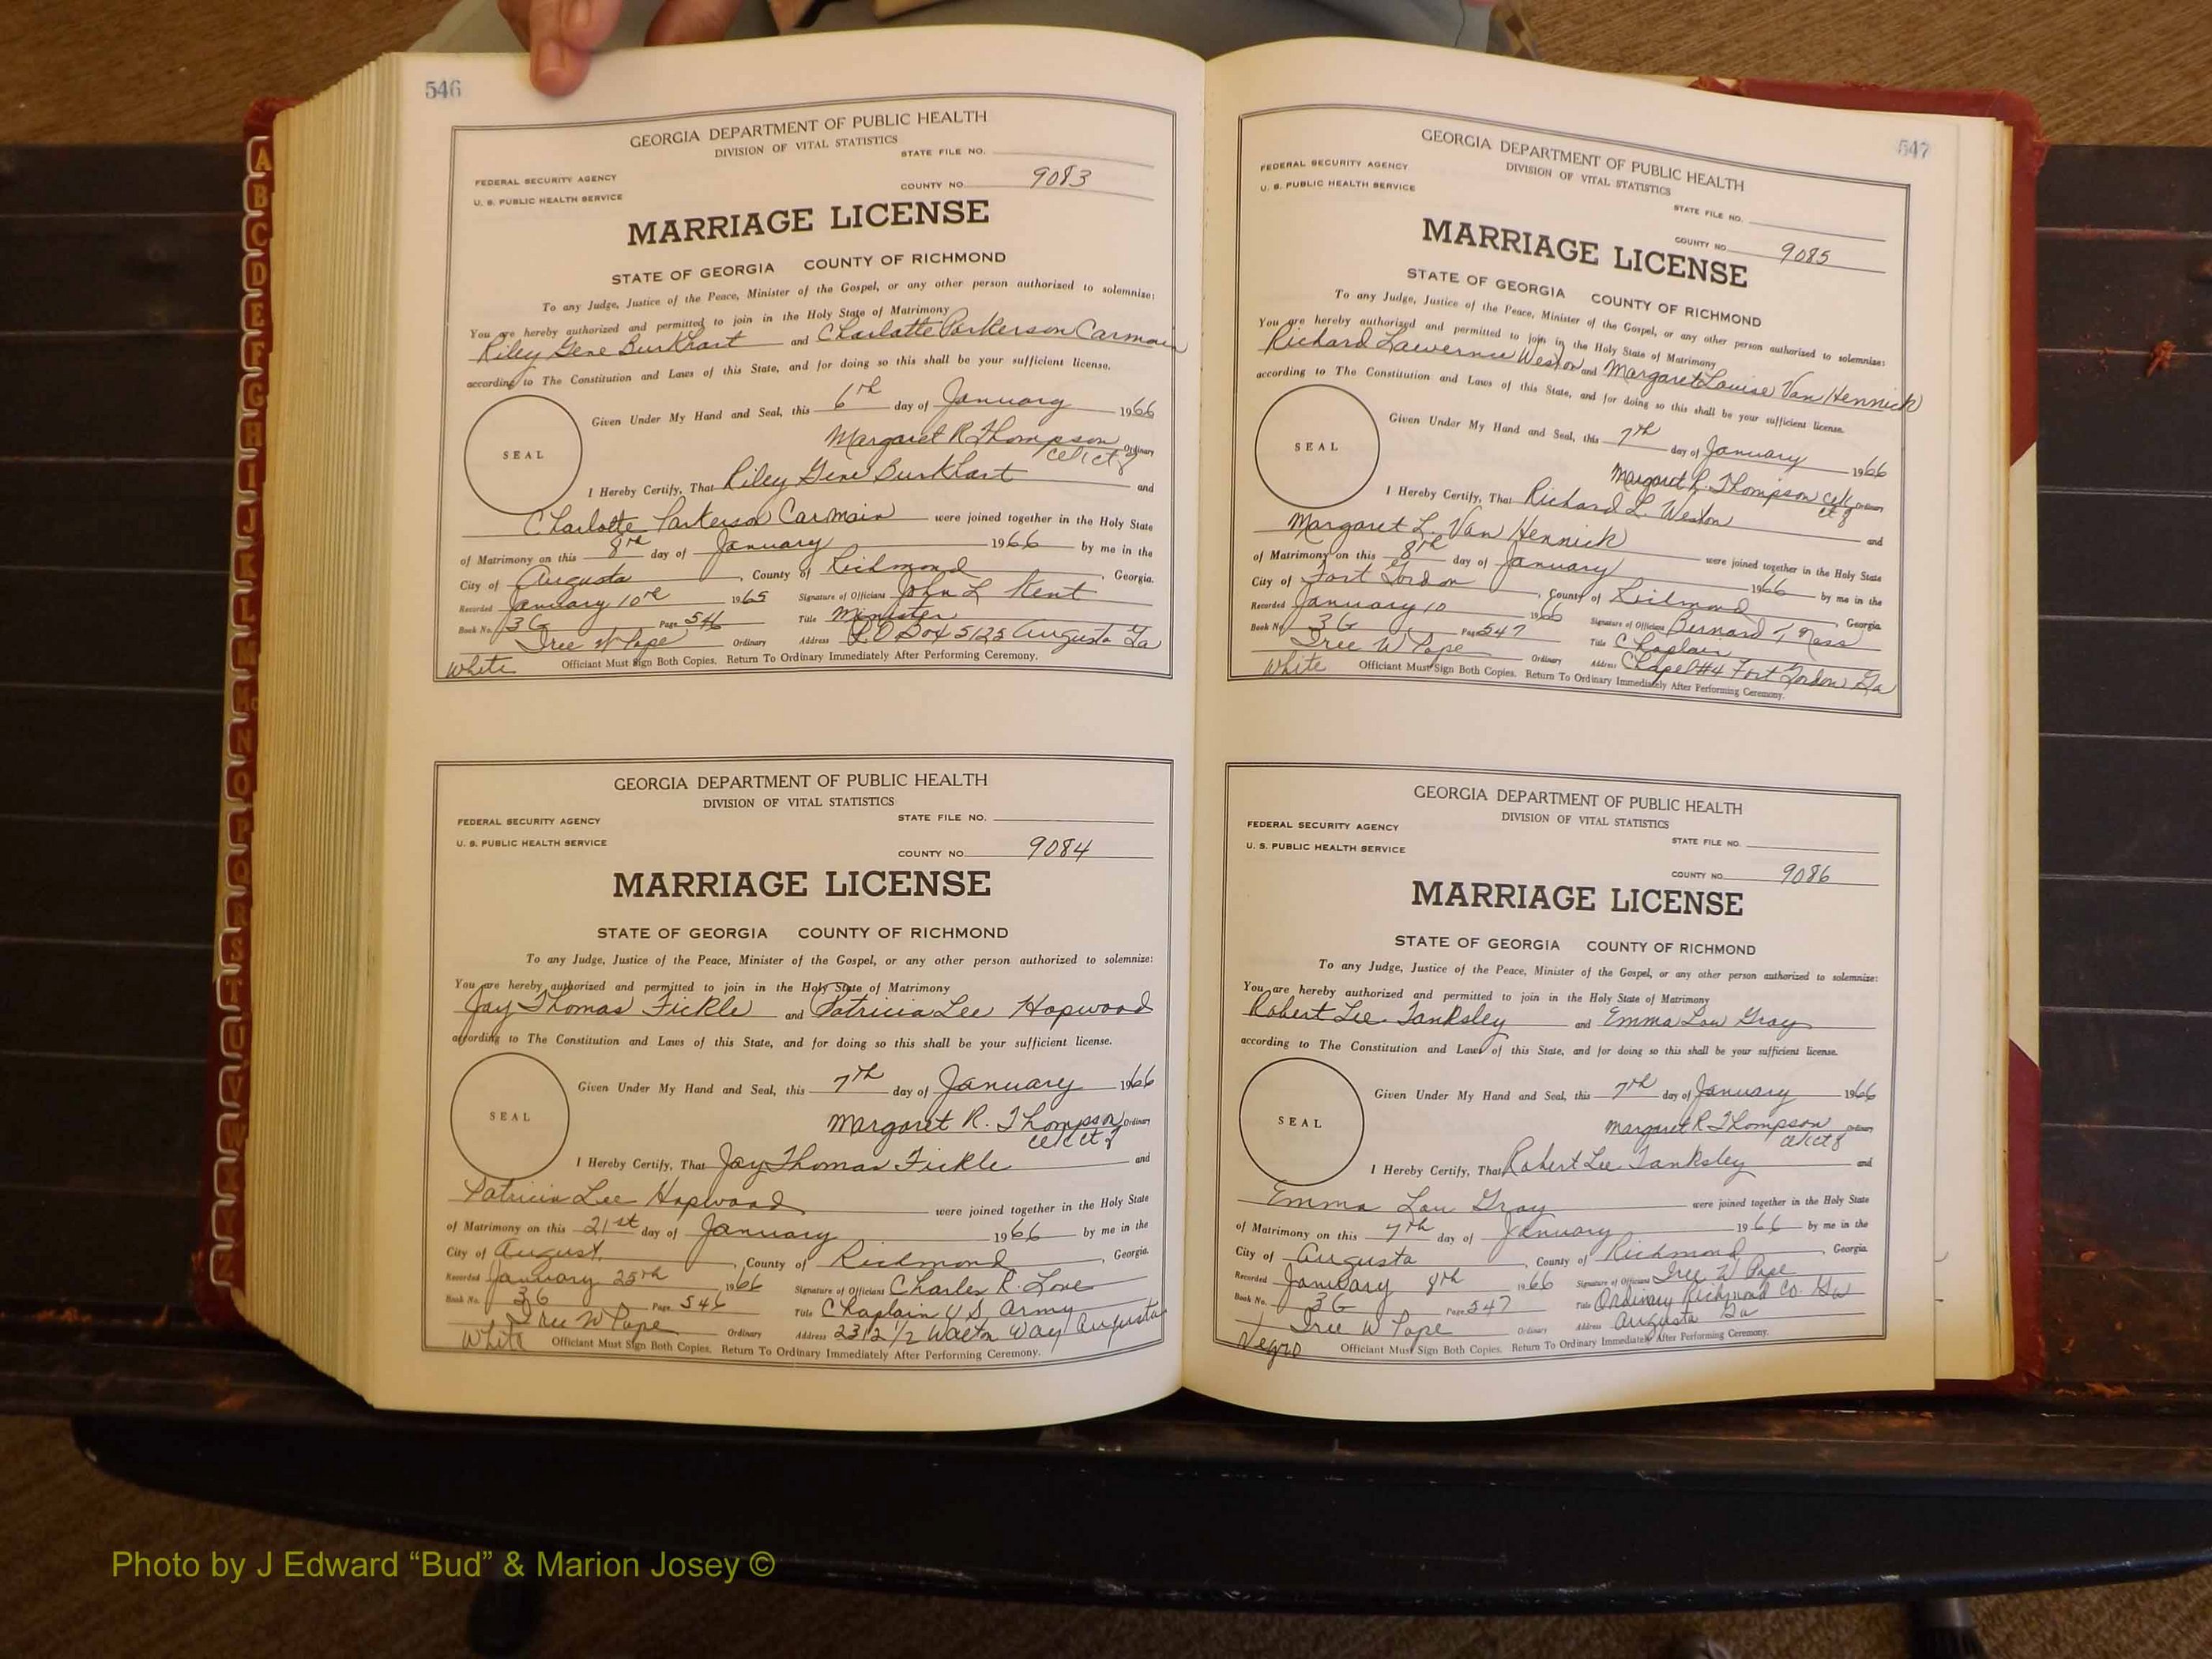 546
GEORGIA DEPARTMENT OF PUBLIC HEALTH
DIVISION OF VITAL STATISTICS
STATE FILE NO.
FEDERAL SECURITY AGENCY
U. S. PUBLIC HEALTH SERVICE
COUNTY NO. 9083
MARRIAGE LICENSE
STATE OF GEORGIA COUNTY OF RICHMOND
To any Judge, Justice of the Peace, Minister of the Gospel, or any other person authorized to solemnize:
You are hereby authorized and permitted to join in the Holy State of Matrimony
Riley Gene Burkhart and Charlotte Parkerson Carmain
according to The Constitution and Laws of this State, and for doing so this shall be your sufficient license.
Given Under My Hand and Seal, this 6th day of January 1966
SEAL
Margaret R Thompson Ordinary
I Hereby Certify, That Riley Gene Burkhart and
Charlotte Parkerson Carmain were joined together in the Holy State
of Matrimony on this 8th day of January 1966 by me in the
City of Augusta, County of Richmond, Georgia.
Recorded January 10th 1965 Signature of Officiant John L Kent
Book No. 3G Page 546 Title Minister
Iree W Pope Ordinary Address P.O Box 5125 Augusta Ga
White Officiant Must Sign Both Copies. Return To Ordinary Immediately After Performing Ceremony.
GEORGIA DEPARTMENT OF PUBLIC HEALTH
DIVISION OF VITAL STATISTICS
STATE FILE NO.
FEDERAL SECURITY AGENCY
U. S. PUBLIC HEALTH SERVICE
COUNTY NO. 9084
MARRIAGE LICENSE
STATE OF GEORGIA COUNTY OF RICHMOND
To any Judge, Justice of the Peace, Minister of the Gospel, or any other person authorized to solemnize:
You are hereby authorized and permitted to join in the Holy State of Matrimony
Jay Thomas Fickle and Patricia Lee Hopwood
according to The Constitution and Laws of this State, and for doing so this shall be your sufficient license.
Given Under My Hand and Seal, this 7th day of January 1966
SEAL
Margaret R. Thompson Ordinary
I Hereby Certify, That Jay Thomas Fickle and
Patricia Lee Hopwood were joined together in the Holy State
of Matrimony on this 21st day of January 1966 by me in the
City of August, County of Richmond, Georgia.
Recorded January 25th 1966 Signature of Officiant Charles R. Love
Book No. 3G Page 546 Title Chaplain US Army
Iree W Pope Ordinary Address 2312 1/2 Walton Way Augusta
White Officiant Must Sign Both Copies. Return To Ordinary Immediately After Performing Ceremony.
547
GEORGIA DEPARTMENT OF PUBLIC HEALTH
DIVISION OF VITAL STATISTICS
FEDERAL SECURITY AGENCY
U. S. PUBLIC HEALTH SERVICE
STATE FILE NO.
COUNTY NO. 9085
MARRIAGE LICENSE
STATE OF GEORGIA COUNTY OF RICHMOND
To any Judge, Justice of the Peace, Minister of the Gospel, or any other person authorized to solemnize:
You are hereby authorized and permitted to join in the Holy State of Matrimony
Richard Lawernce Weston and Margaret Louise Van Hennick
according to The Constitution and Laws of this State, and for doing so this shall be your sufficient license.
Given Under My Hand and Seal, this 7th day of January 1966
SEAL
Margaret R. Thompson Ordinary
I Hereby Certify, That Richard L. Weston and
Margaret L. Van Hennick were joined together in the Holy State
of Matrimony on this 8th day of January 1966 by me in the
City of Fort Gordon, County of Richmond, Georgia
Recorded January 10 1966 Signature of Officiant Bernard T Nass
Book No. 3G Page 547 Title Chaplain
Iree W Pope Ordinary Address Chapel #4 Fort Gordon Ga
White Officiant Must Sign Both Copies. Return To Ordinary Immediately After Performing Ceremony.
GEORGIA DEPARTMENT OF PUBLIC HEALTH
DIVISION OF VITAL STATISTICS
FEDERAL SECURITY AGENCY
U. S. PUBLIC HEALTH SERVICE
STATE FILE NO.
COUNTY NO. 9086
MARRIAGE LICENSE
STATE OF GEORGIA COUNTY OF RICHMOND
To any Judge, Justice of the Peace, Minister of the Gospel, or any other person authorized to solemnize:
You are hereby authorized and permitted to join in the Holy State of Matrimony
Robert Lee Tanksley and Emma Lou Gray
according to The Constitution and Laws of this State, and for doing so this shall be your sufficient license.
Given Under My Hand and Seal, this 7th day of January 1966
SEAL
Margaret R Thompson Ordinary
I Hereby Certify, That Robert Lee Tanksley and
Emma Lou Gray were joined together in the Holy State
of Matrimony on this 7th day of January 1966 by me in the
City of Augusta, County of Richmond, Georgia.
Recorded January 8th 1966 Signature of Officiant Iree W Pope
Book No. 3G Page 547 Title Ordinary Richmond Co. Ga
Iree W Pope Ordinary Address Augusta Ga
Negro Officiant Must Sign Both Copies. Return To Ordinary Immediately After Performing Ceremony.
A
B
C
D
E
F
G
H
I
J
K
L
M
Mc
N
O
P
Q
R
S
T
U
V
W
X
Y
Z
Photo by J Edward “Bud” & Marion Josey ©